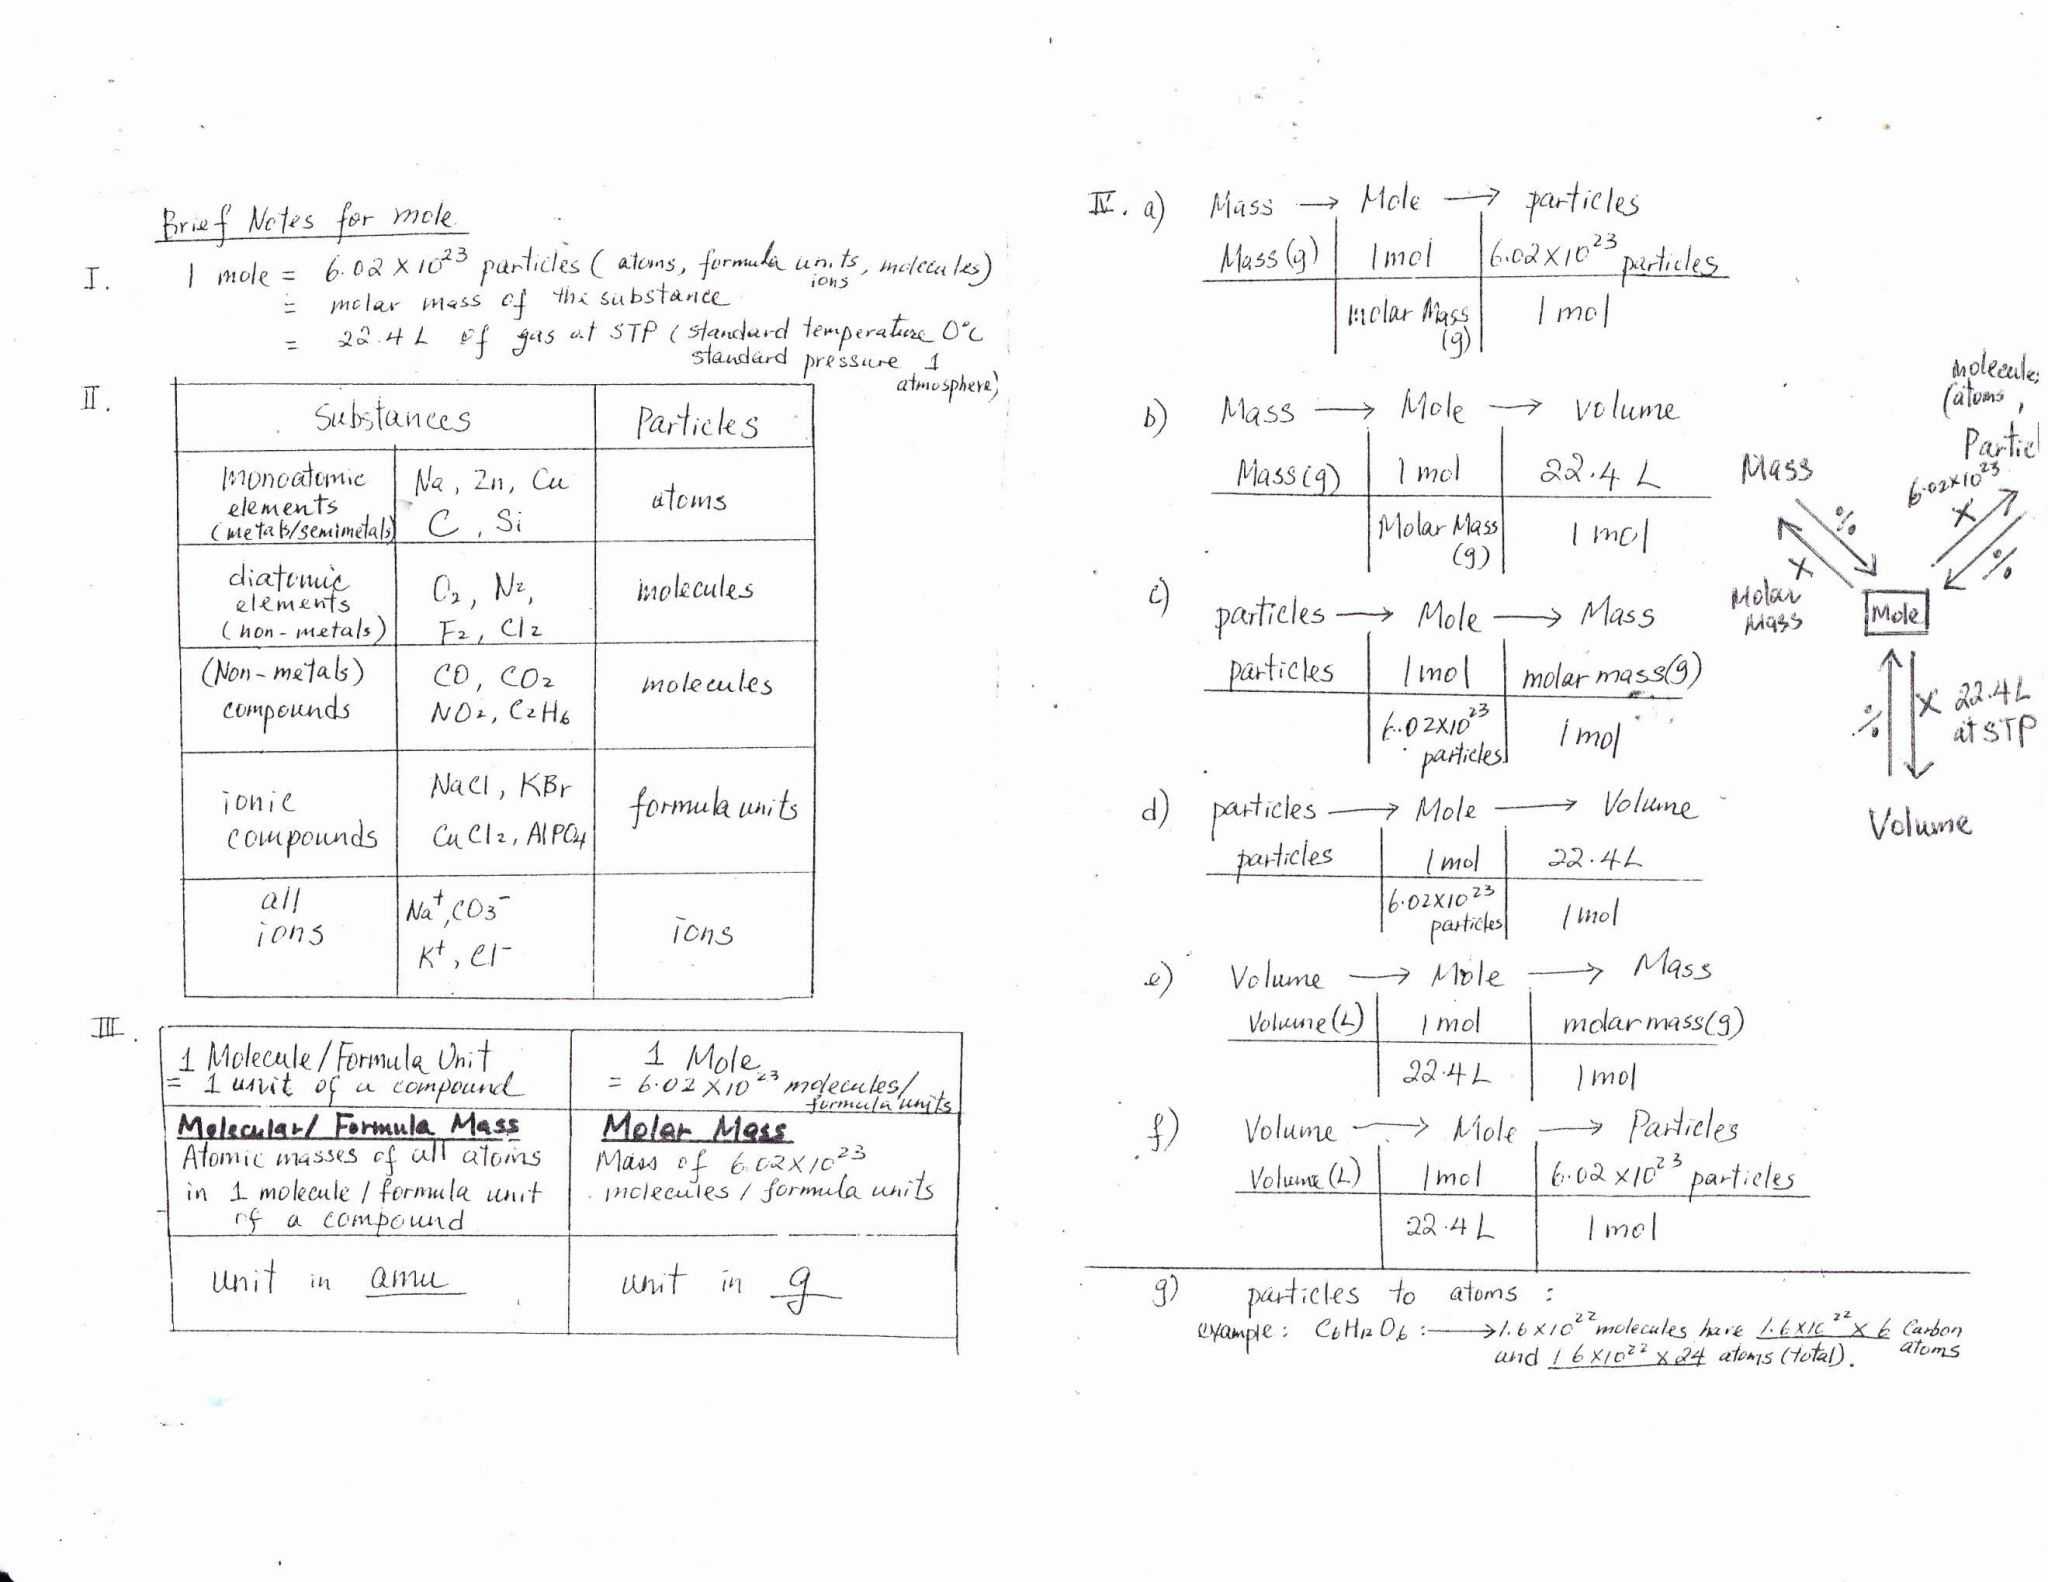 Brief Notes for mole
I. 1 mole = 6.02 X 10²³ particles (atoms, formula units, molecules)
ions
= molar mass of the substance
= 22.4 L of gas at STP (standard temperature 0°C
standard pressure 1
atmosphere)
II.
Substances Particles
Monoatomic
elements
(metals/semimetals)
Na, Zn, Cu
C, Si
atoms
diatomic
elements
(non-metals)
O₂, N₂,
F₂, Cl₂
molecules
(Non-metals)
compounds
CO, CO₂
NO₂, C₂H₆
molecules
ionic
compounds
NaCl, KBr
CuCl₂, AlPO₄
formula units
all
ions
Na⁺, CO₃⁻
K⁺, Cl⁻
ions
III.
1 Molecule/Formula Unit
= 1 unit of a compound
1 Mole
= 6.02 X10²³ molecules/
formula units
Molecular/ Formula Mass
Atomic masses of all atoms
in 1 molecule / formula unit
of a compound
Molar Mass
Mass of 6.02X10²³
molecules / formula units
unit in amu
unit in g
IV. a) Mass → Mole → particles
Mass(g) 1 mol 6.02X10²³ particles
molar Mass 1 mol
(g)
b) Mass → Mole → volume
Mass(g) 1 mol 22.4 L
Molar Mass 1 mol
(g)
c) particles → Mole → Mass
particles 1 mol molar mass(g)
6.02X10²³ 1 mol
particles
d) particles → Mole → Volume
particles 1 mol 22.4L
6.02X10²³ 1 mol
particles
e) Volume → Mole → Mass
Volume(L) 1 mol molar mass(g)
22.4L 1 mol
f) Volume → Mole → Particles
Volume(L) 1 mol 6.02 X10²³ particles
22.4 L 1 mol
g) particles to atoms :
example: C₆H₁₂O₆ : → 1.6X10²² molecules have 1.6X10²² X 6 Carbon
atoms
and 1.6X10²² X 24 atoms (total).
molecules
(atoms,
Particl
Mass
6.02X10²³
X
%
%
X
Molar
Mass
Mole
%
X 22.4L
at STP
Volume